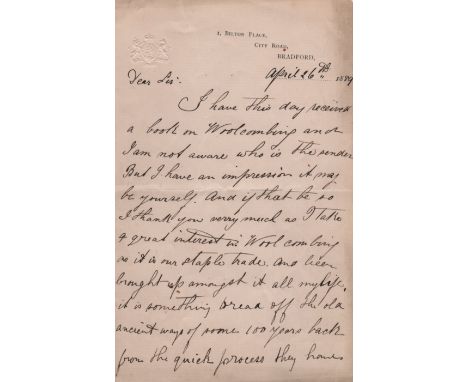 1, BILTON PLACE,
CITY ROAD,
BRADFORD,
April 26th 1889
Dear Sir
I have this day received
a book on Woolcombing and
I am not aware who is the sender
But I have an impression it may
be yourself. And if that be so
I thank you verry much as I take
a great interest in Wool combing
as it is our staple trade. And been
brought up amongst it all my life.
it is something to read off the old
ancient ways of some 100 years back
from the quick process they have